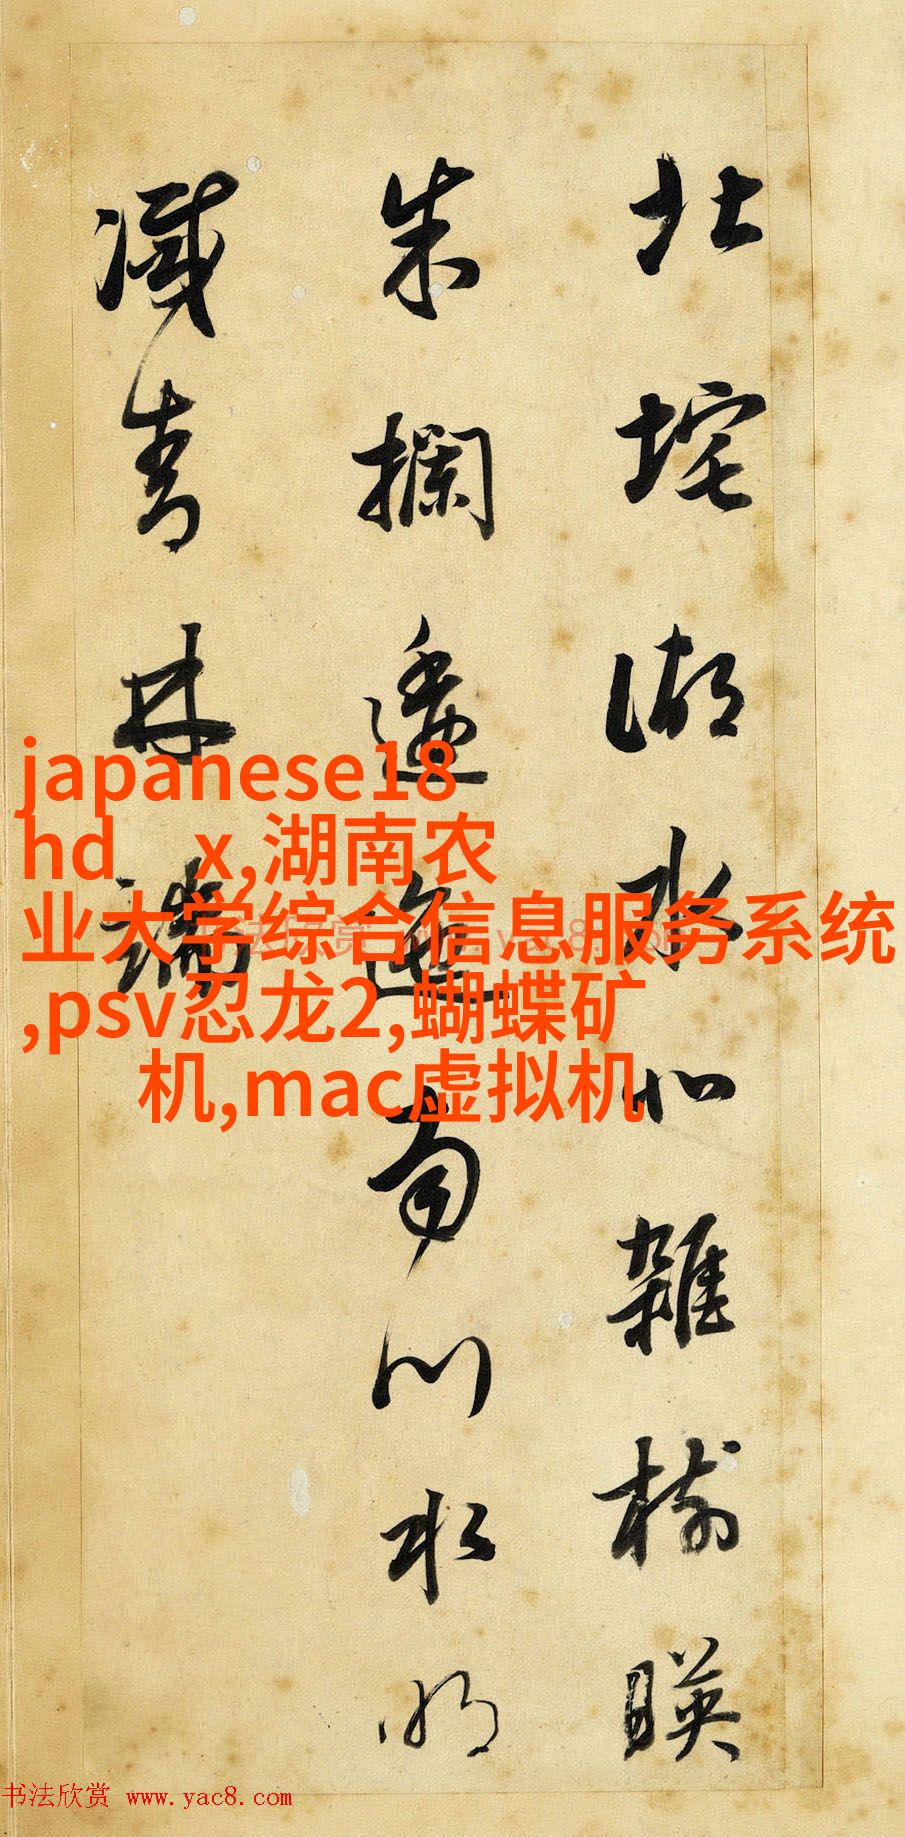 北垞湖水北雜樹暎
朱欄逶迤南川水明
滅青林端
japanese18
hd x,湖南农
业大学综合信息服务系统
,psv忍龙2,蝴蝶矿
机,mac虚拟机
书法欣赏 www.yac8.com